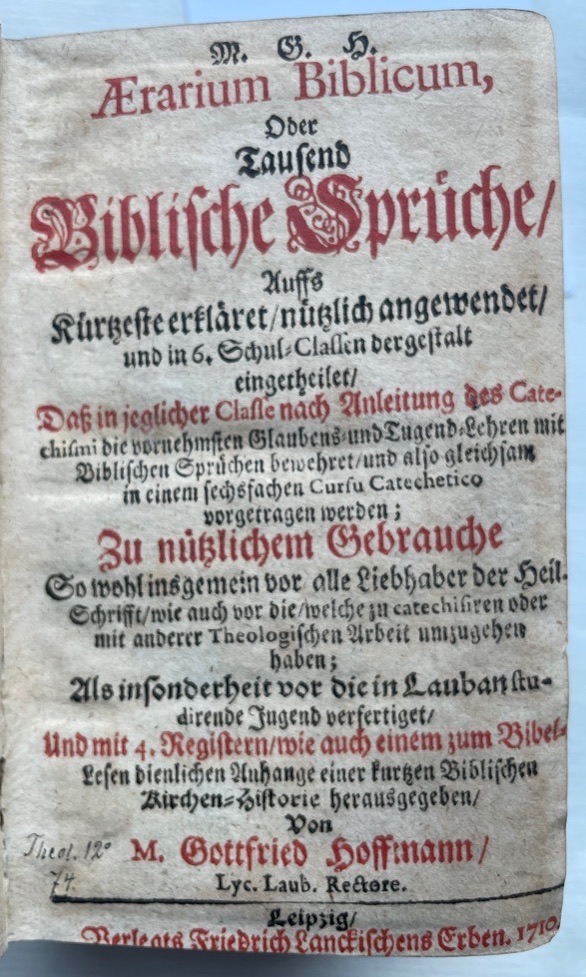 M. G. H.
Ærarium Biblicum,
Oder
Tausend
Biblische Sprüche/
Auffs
Kürtzeste erkläret/nützlich angewendet/
und in 6. Schul-Classen dergestalt
eingetheilet/
Daß in jeglicher Classe nach Anleitung des Cate-
chismi die vornehmsten Glaubens-und Tugend-Lehren mit
Biblischen Sprüchen bewehret/und also gleichsam
in einem sechsfachen Cursu Catechetico
vorgetragen werden;
Zu nützlichem Gebrauche
So wohl insgemein vor alle Liebhaber der Heil.
Schrifft/wie auch vor die/welche zu catechisiren oder
mit anderer Theologischen Arbeit umzugehen
haben;
Als insonderheit vor die in Lauban stu-
dirende Jugend verfertiget/
Und mit 4. Registern/wie auch einem zum Bibel-
Lesen dienlichen Anhange einer kurtzen Biblischen
Kirchen-Historie herausgegeben/
Von
M. Gottfried Hoffmann/
Lyc. Laub. Rectore.
Theol. 12°
74.
Leipzig/
Verlegts Friedrich Lanckischens Erben. 1710.